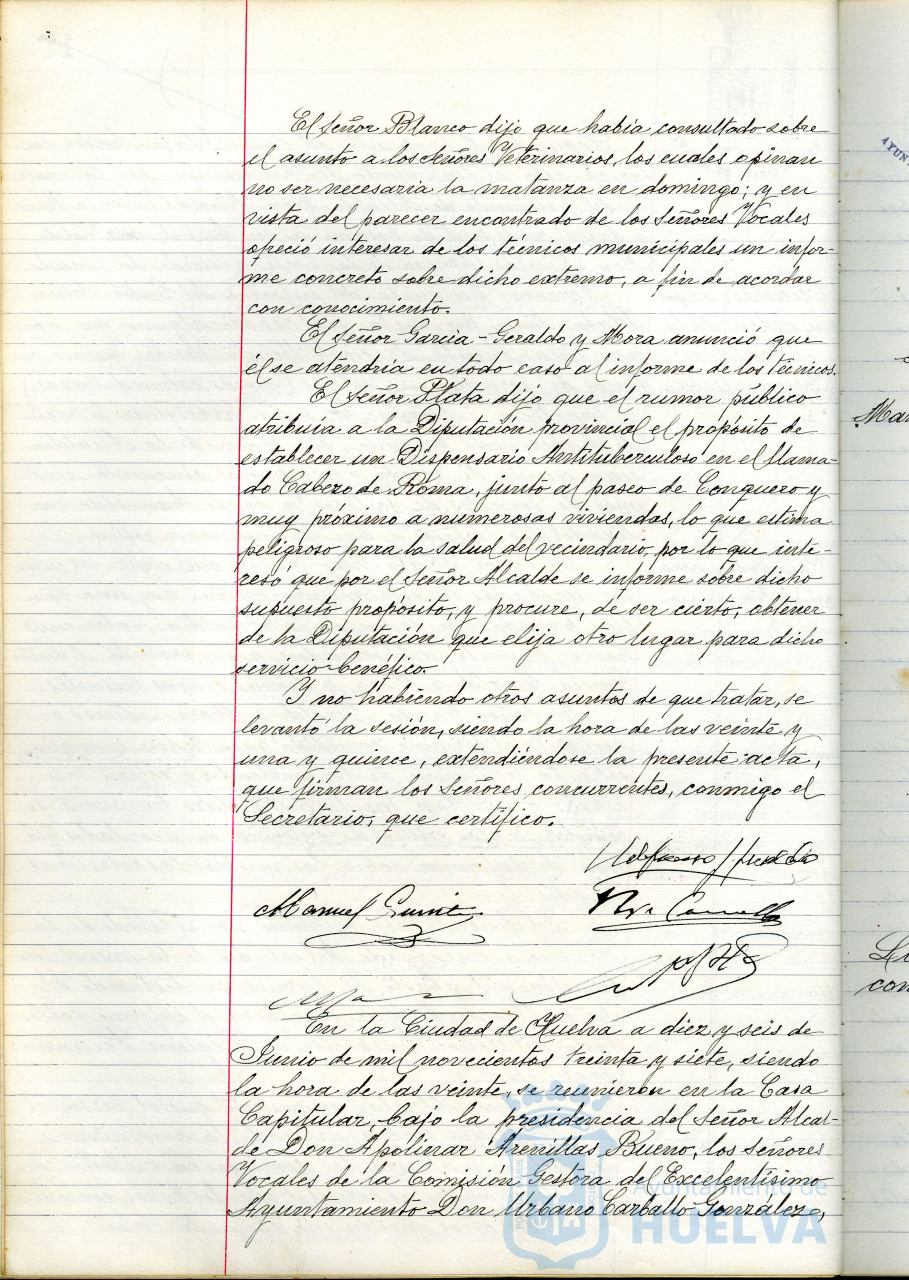 El Señor Blanco dijo que había consultado sobre
el asunto a los Señores Veterinarios, los cuales opinan
no ser necesaria la matanza en domingo; y en
vista del parecer encontrado de los Señores Vocales
ofreció interesar de los técnicos municipales un infor-
me concreto sobre dicho extremo, a fin de acordar
con conocimiento.
El Señor Garcia-Geraldo y Mora anunció que
él se atendria en todo caso al informe de los técnicos.
El Señor Plata dijo que el rumor público
atribuia a la Diputación provincial el propósito de
establecer un Dispensario Antituberculoso en el llama-
do Cabezo de Roma, junto al paseo de Conquero y
muy próximo a numerosas viviendas, lo que estima
peligroso para la salud del vecindario, por lo que inte-
resó que por el Señor Alcalde se informe sobre dicho
supuesto propósito, y procure, de ser cierto, obtener
de la Diputación que elija otro lugar para dicho
servicio benéfico.
Y no habiendo otros asuntos de que tratar, se
levantó la sesión, siendo la hora de las veinte y
una y quince, extendiéndose la presente acta,
que firman los Señores concurrentes, conmigo el
Secretario, que certifico.
Manuel
En la Ciudad de Huelva a diez y seis de
Junio de mil novecientos treinta y siete, siendo
la hora de las veinte, se reunieron en la Casa
Capitular, bajo la presidencia del Señor Alcal-
de Don Apolinar Arenillas Bueno, los Señores
Vocales de la Comisión Gestora del Excelentísimo
Ayuntamiento Don Urbano Carballo González,
Ayuntamiento de
HUELVA
AYUN
Mar
con